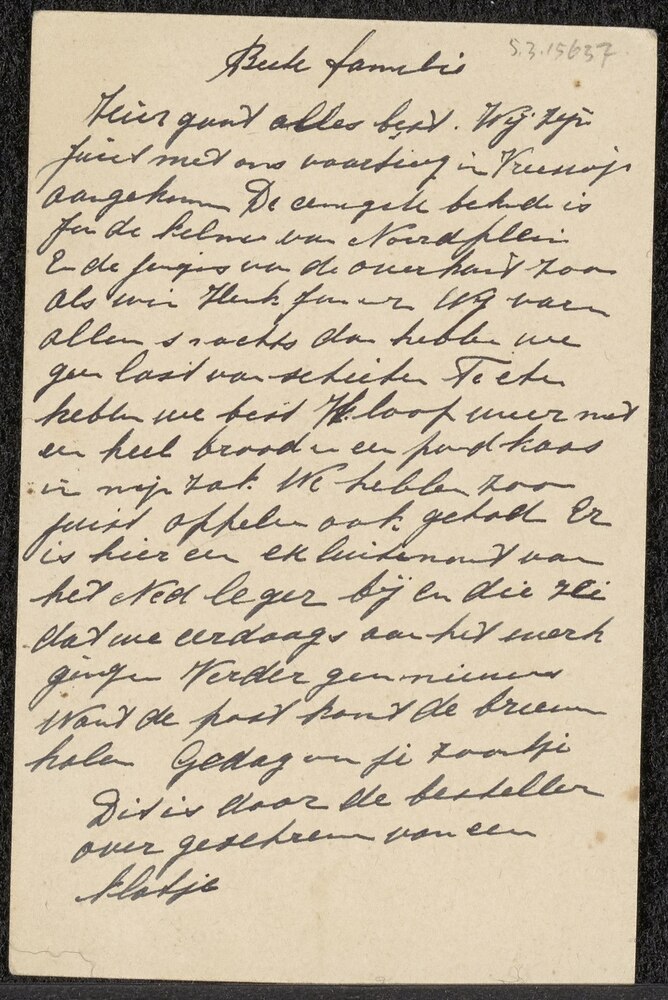 5.3.15637
Beste familie
Hier gaat alles best. Wij zijn
juist met ons vaartuig in Vreeswijk
aangekomen De eenigste bekende is
Jan de kelner van Noordplein
En de jongens van de overkant zoo
als wir Henk Jan er Wij varen
allen s nachts dan hebben we
geen last van schieten Te eten
hebben we best Ik loop weer met
een heel brood en een pond kaas
in mijn zak. We hebben zoo
juist appelen ook gehad Er
is hier een ex luitenant van
het Ned leger bij en die zei
dat we eerdaags aan het werk
gingen Verder geen nieuws
Want de post komt de brieven
halen Gedag van je zoontje
Dit is door de besteller
over geschreven van een
blaadje